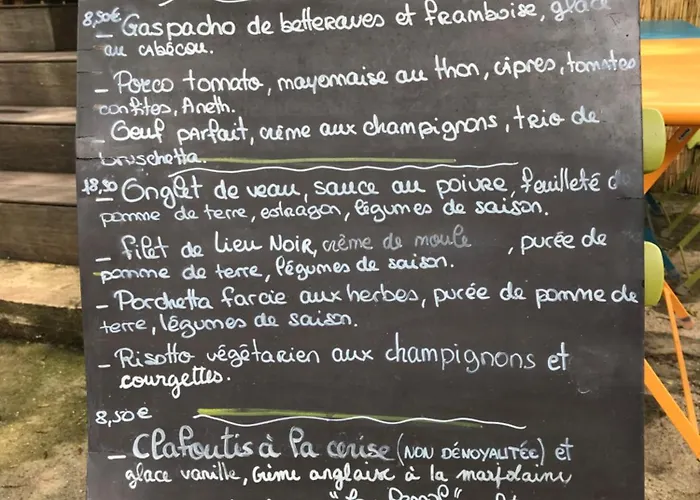 8,50€
- Gaspacho de betteraves et framboise, glace
au cabécou.
- Porco tomato, mayomaise au thon, cipres, tomates
confites, Aneth.
- Oeuf parfait, crème aux champignons, trio de
bruschetta.
18,50
- Onglet de veau, sauce au poivre, feuilleté d
pomme de terre, estragon, légumes de saison.
- Filet de Lieu Noir, crème de moule , purée de
pomme de terre, légumes de saison.
- Porchetta farcie aux herbes, purée de pomme de
terre, légumes de saison.
- Risotto végétarien aux champignons et
courgettes.
8,50€
- Clafoutis à la cerise (NON DÉNOYALITÉE) et
glace vanille, Crème anglaise à la marjolaine